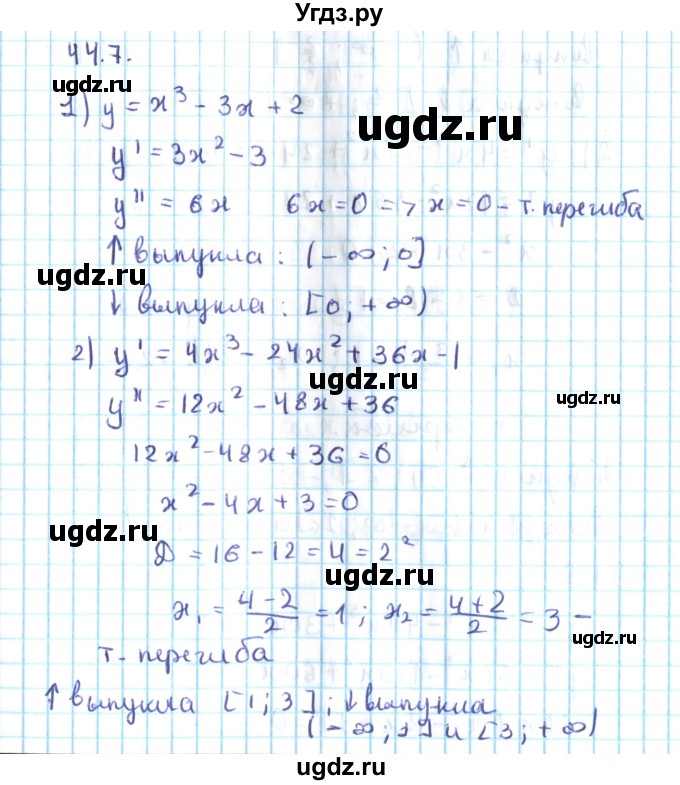 Угдз.ру
44.7.
ugdz.ru
1) y = x³ - 3x + 2
ugdz.ru
y' = 3x² - 3
y'' = 6x 6x = 0 => x = 0 - т. перегиба
↑ выпукла : (-∞; 0]
ugdz.ru
↓ выпукла : [0; +∞)
2) y' = 4x³ - 24x² + 36x - 1
ugdz.ru
y'' = 12x² - 48x + 36
ugdz.ru
12x² - 48x + 36 = 0
x² - 4x + 3 = 0
ugdz.ru
D = 16 - 12 = 4 = 2²
ugdz.ru
x₁ = (4-2)/2 = 1; x₂ = (4+2)/2 = 3 -
ugdz.ru
т. перегиба
↑ выпукла [1; 3]; ↓ выпукла
(-∞; 1] и [3; +∞)
ugdz.ru